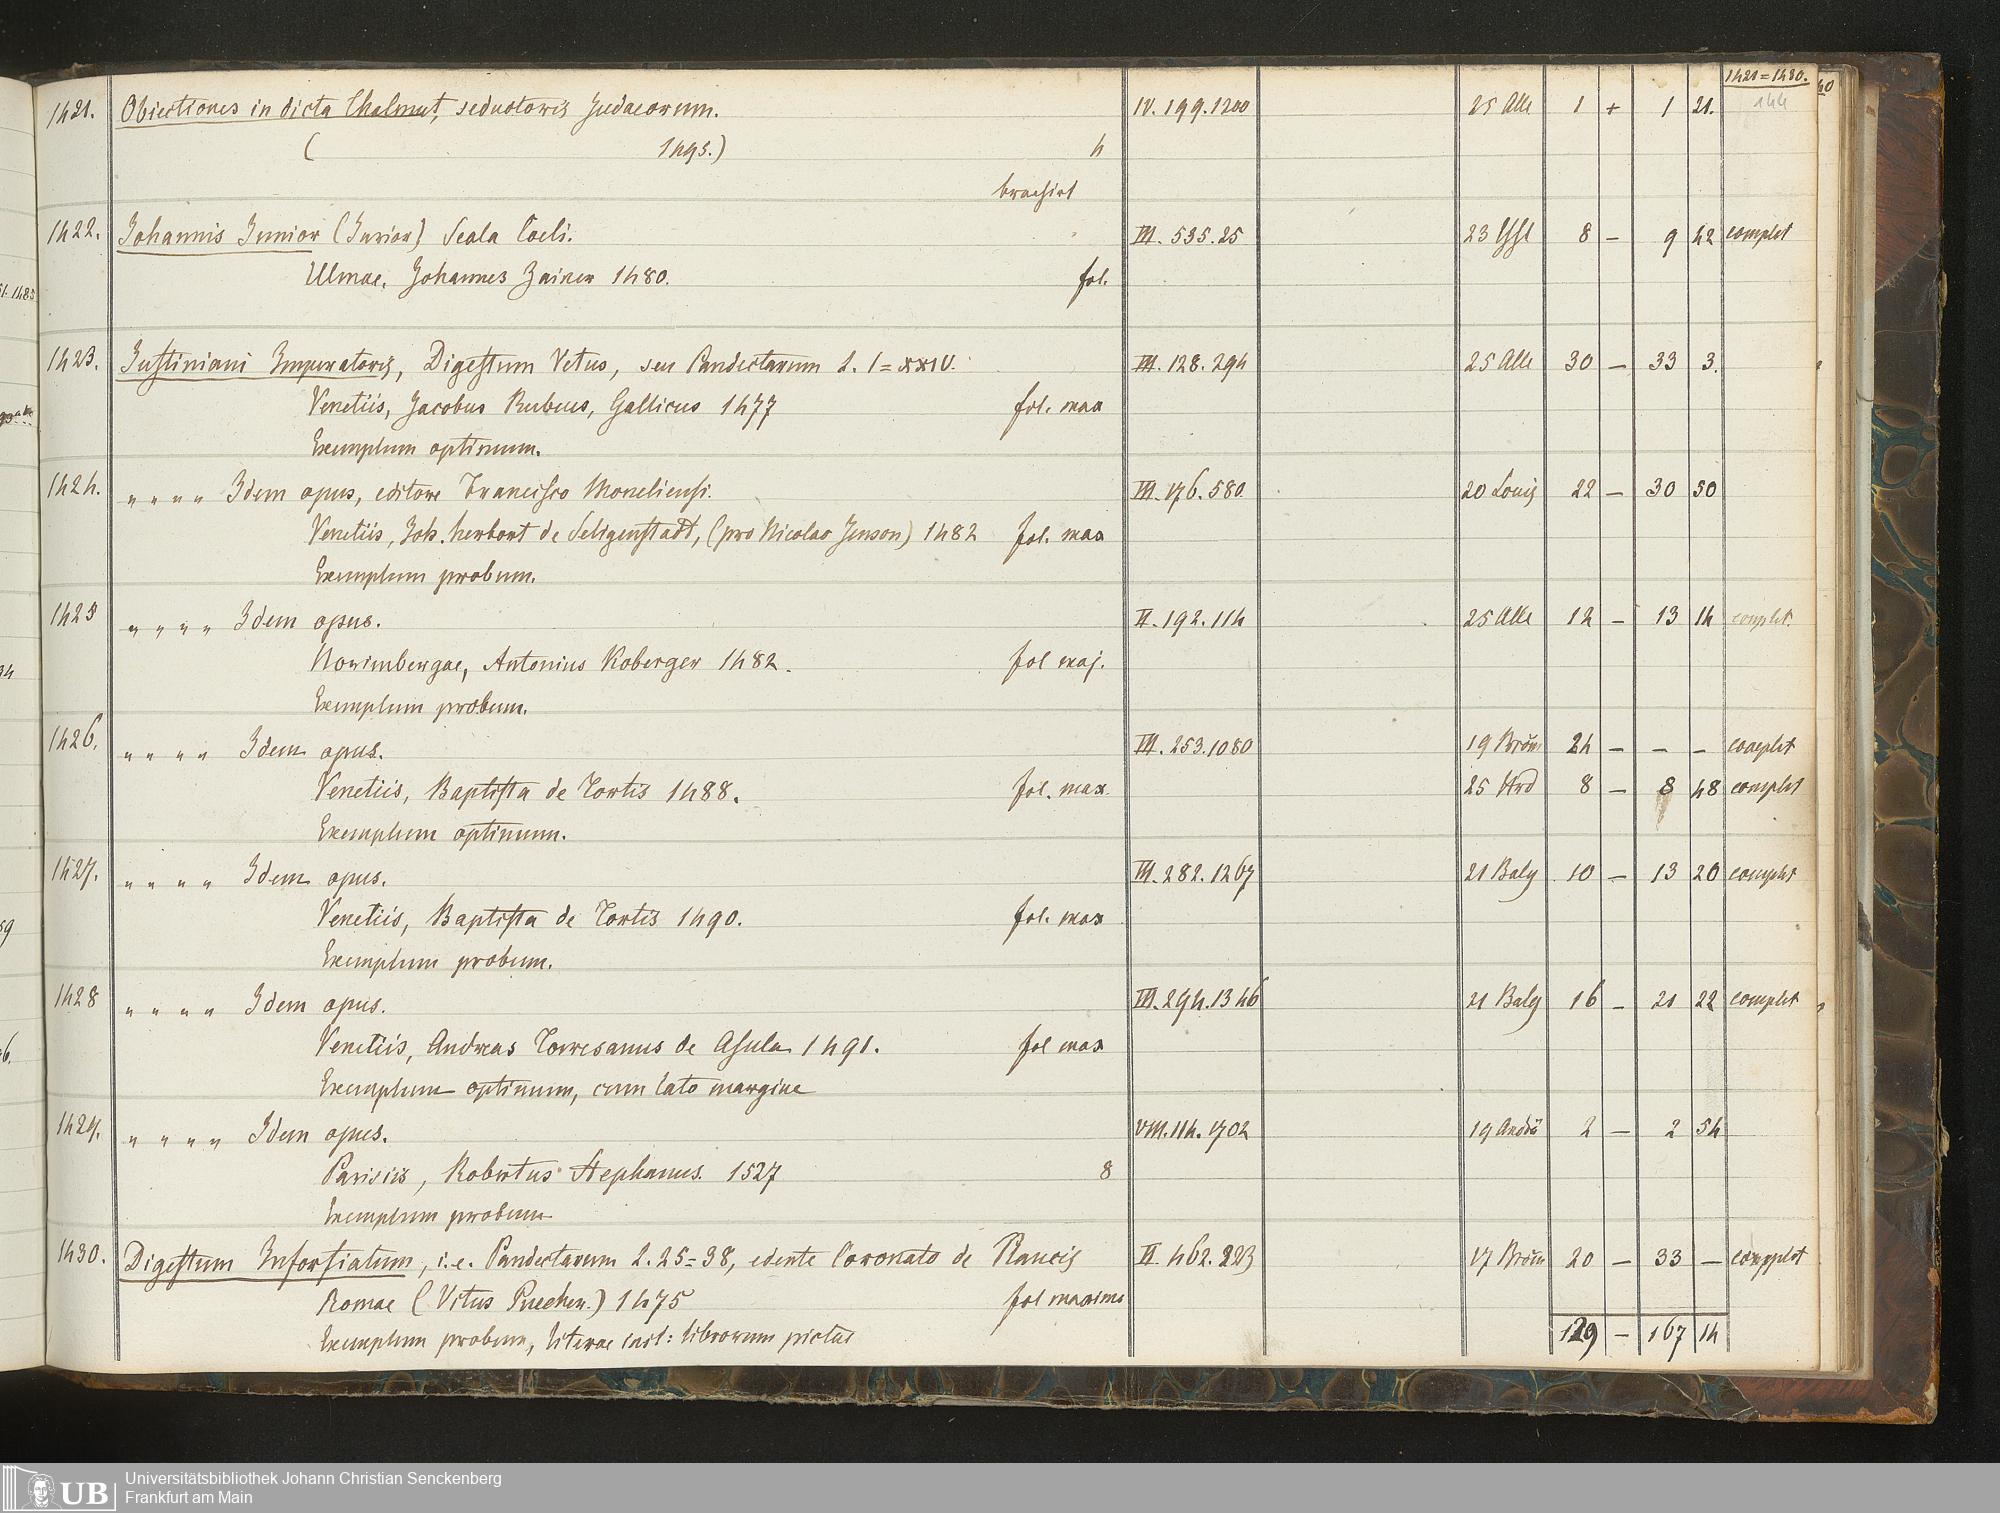 1421=1430.
144
1421. Obiectiones in dicta Thalmut, seductoris Judaeorum. IV. 199. 1200 25 Alle 1 + 1 21.
( 1495.) 4
brochirt
1422. Johannis Junior (Junior) Scala Coeli. III. 535. 25 23 8 – 9 42 complet
Ulmae, Johannes Zainer 1480. fol.
1423. Justiniani Imperatoris, Digestum Vetus, seu Pandectarum L. I=XXIV. III. 128. 294 25 Alle 30 – 33 3.
Venetiis, Jacobus Rubeus, Gallicus 1477 fol. max
Exemplum optimum.
1424. " " " " Idem opus, editore Francisco Moneliensi. III. 176. 580. 20 Louis 22 – 30 50
Venetiis, Joh. herbort de Seligenstadt, (pro Nicolao Jenson) 1482 fol. max
Exemplum probum.
1425 " " " " Idem opus. II. 192. 114 25 Alle 12 – 13 14 complet.
Norimbergae, Antonius Koberger 1482. fol maj.
Exemplum probum.
1426. " " " " Idem opus. III. 253. 1080 19 Brön 24 – – – complet
Venetiis, Baptista de Tortis 1488. fol. max. 25 Hrd 8 – 8 48 complet
Exemplum optimum.
1427. " " " " Idem opus. III. 282. 1267 21 Baly 10 – 13 20 complet
Venetiis, Baptista de Tortis 1490. fol. max
Exemplum probum.
1428 " " " " Idem opus. III. 294. 1346 21 Baly 16 – 21 22 complet
Venetiis, Andreas Torresanus de Asula 1491. fol max
Exemplum optimum, cum lato margine
1429. " " " " Idem opus. VIII. 114. 1702 19 Andrä 2 – 2 54
Parisiis, Robertus Stephanus. 1527 8
Exemplum probum
1430. Digestum Infortiatum, i.e. Pandectarum L. 25=38, edente Coronato de Plancis II. 462. 223 17 Brön 20 – 33 – complet
Romae (Vitus Puecher.) 1475 fol maximo
Exemplum probum, literae init: librorum pictae
129 – 167 14
UB
Universitätsbibliothek Johann Christian Senckenberg
Frankfurt am Main